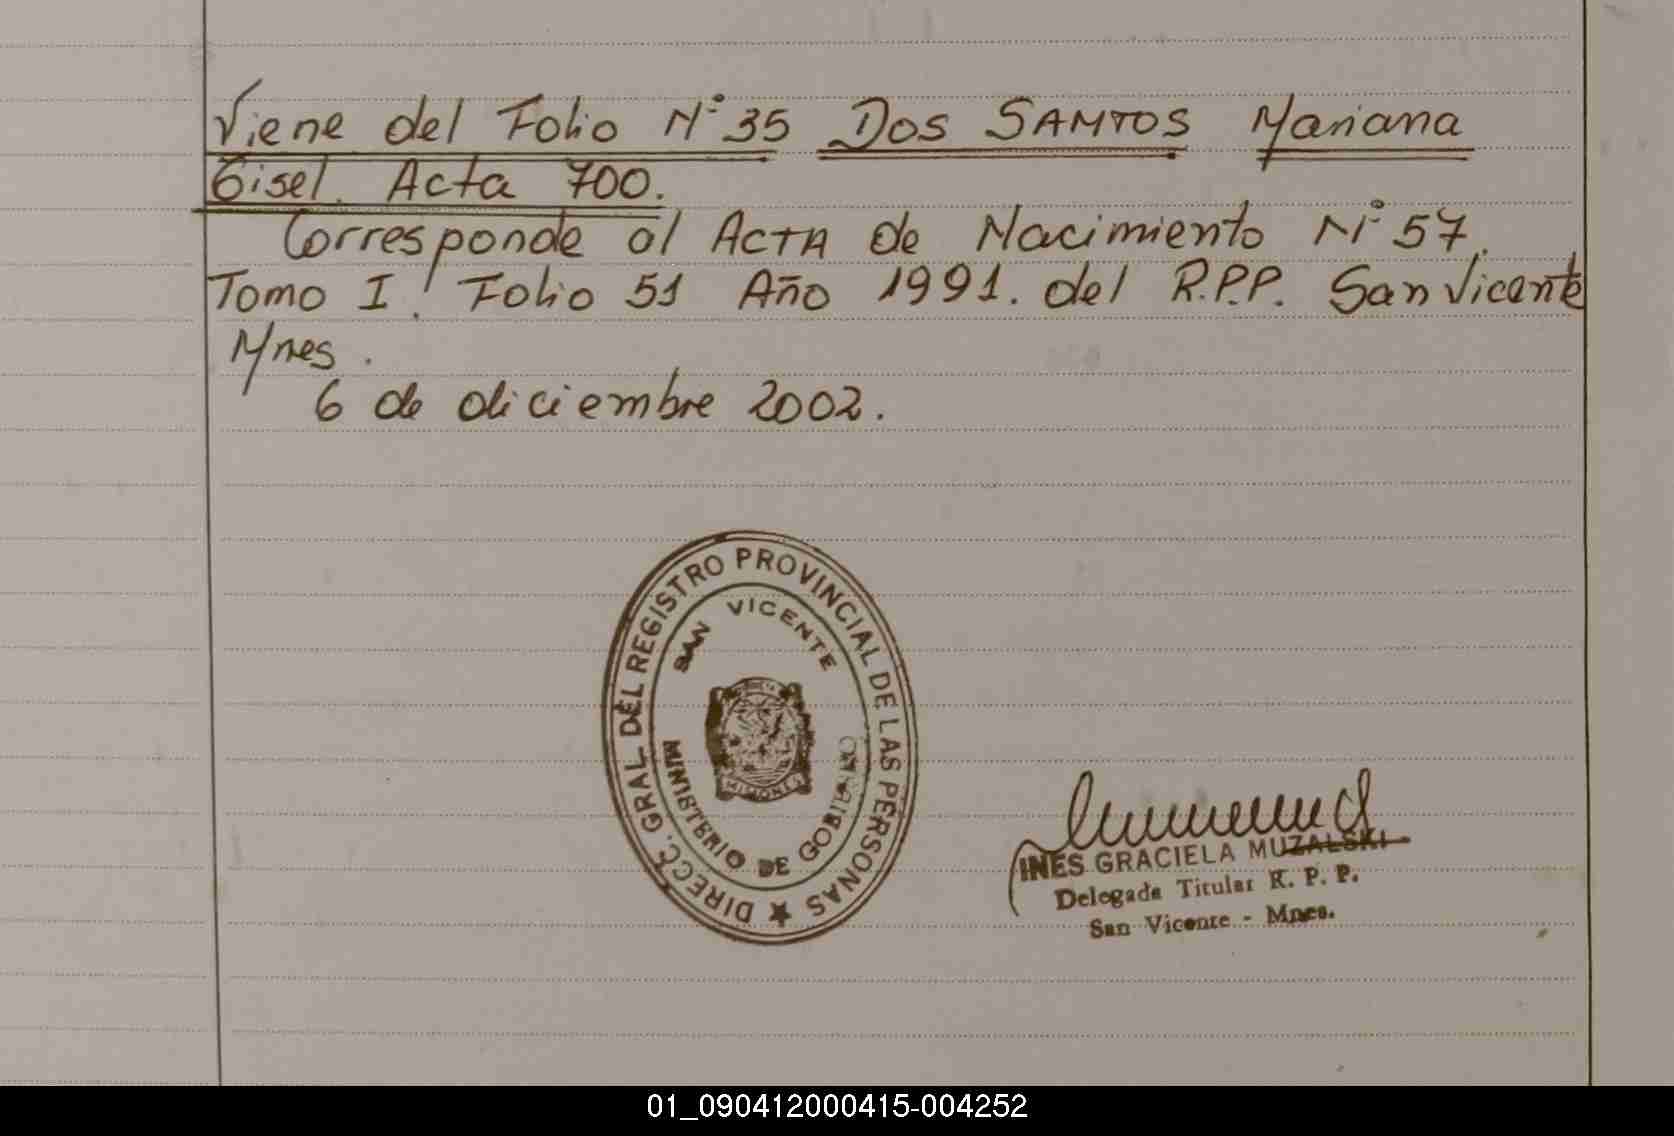 Viene del Folio N° 35 DOS SANTOS Mariana
Gisel. Acta 700.
Corresponde al ACTA de Nacimiento N° 57.
Tomo I. Folio 51 Año 1991. del R.P.P. San Vicente
Mnes.
6 de diciembre 2002.
DIRECC. GRAL. DEL REGISTRO PROVINCIAL DE LAS PERSONAS
SAN VICENTE
MISIONES
MINISTERIO DE GOBIERNO
INES GRACIELA MUZALSKI
Delegada Titular R. P. P.
San Vicente - Mnes.
01_090412000415-004252